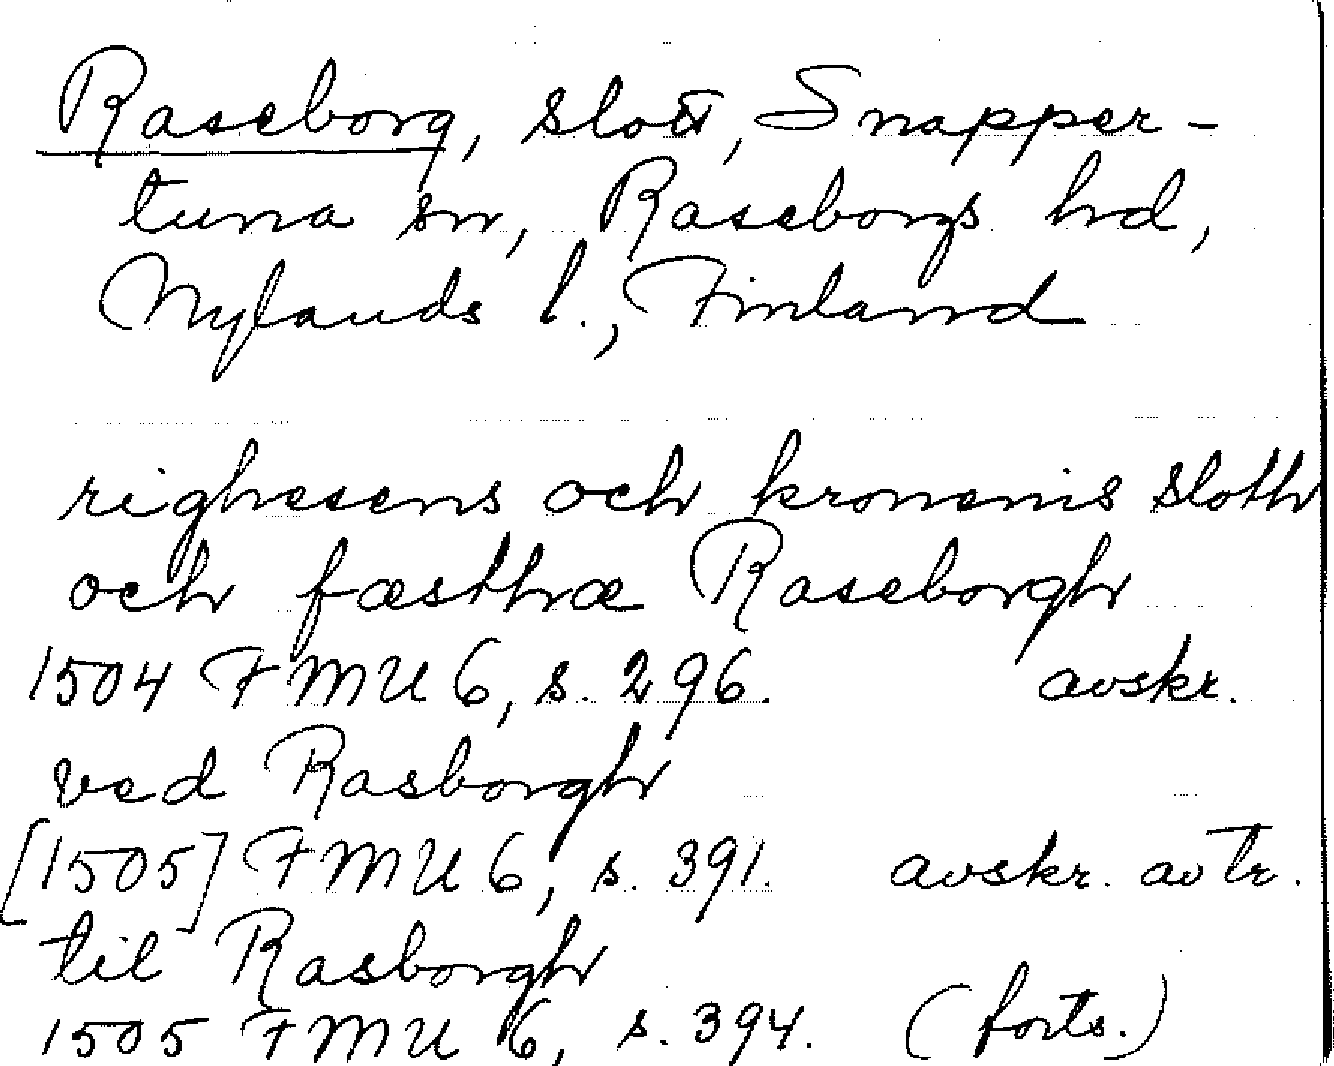 Raseborg, slott, Snapper-
tuna sn, Raseborgs hd,
Nylands l., Finland
righesens och kronenis sloth
och fæsthæ Raseborgh
1504 FMU 6, s. 296. avskr.
ved Rasborgh
[1505] FMU 6, s. 391. avskr. av tr.
til Rasborgh
1505 FMU 6, s. 394. (forts.)